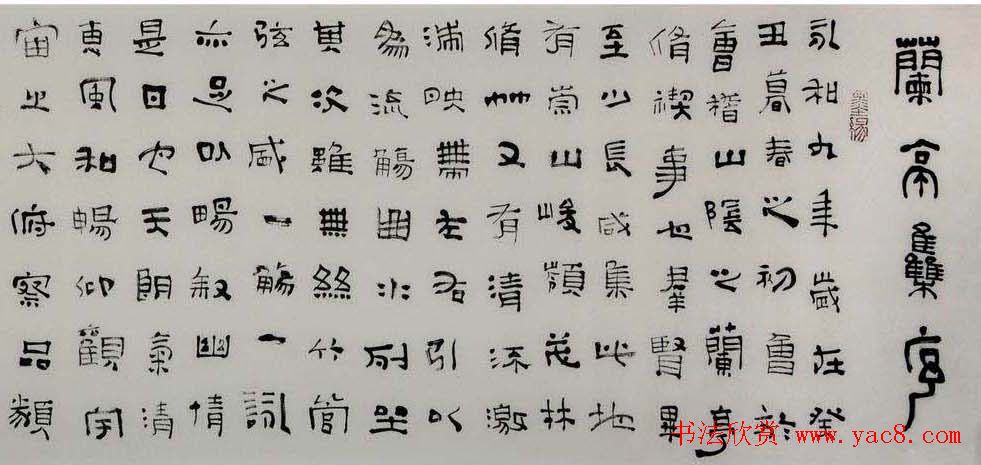 蘭亭集序
永和九年歲在癸
丑暮春之初會於
會稽山陰之蘭亭
脩禊事也羣賢畢
至少長咸集此地
有崇山峻嶺茂林
脩竹又有清流激
湍映帶左右引以
為流觴曲水列坐
其次雖無絲竹管
弦之盛一觴一詠
亦足以暢叙幽情
是日也天朗氣清
惠風和暢仰觀宇
宙之大俯察品類
书法欣赏 www.yac8.com